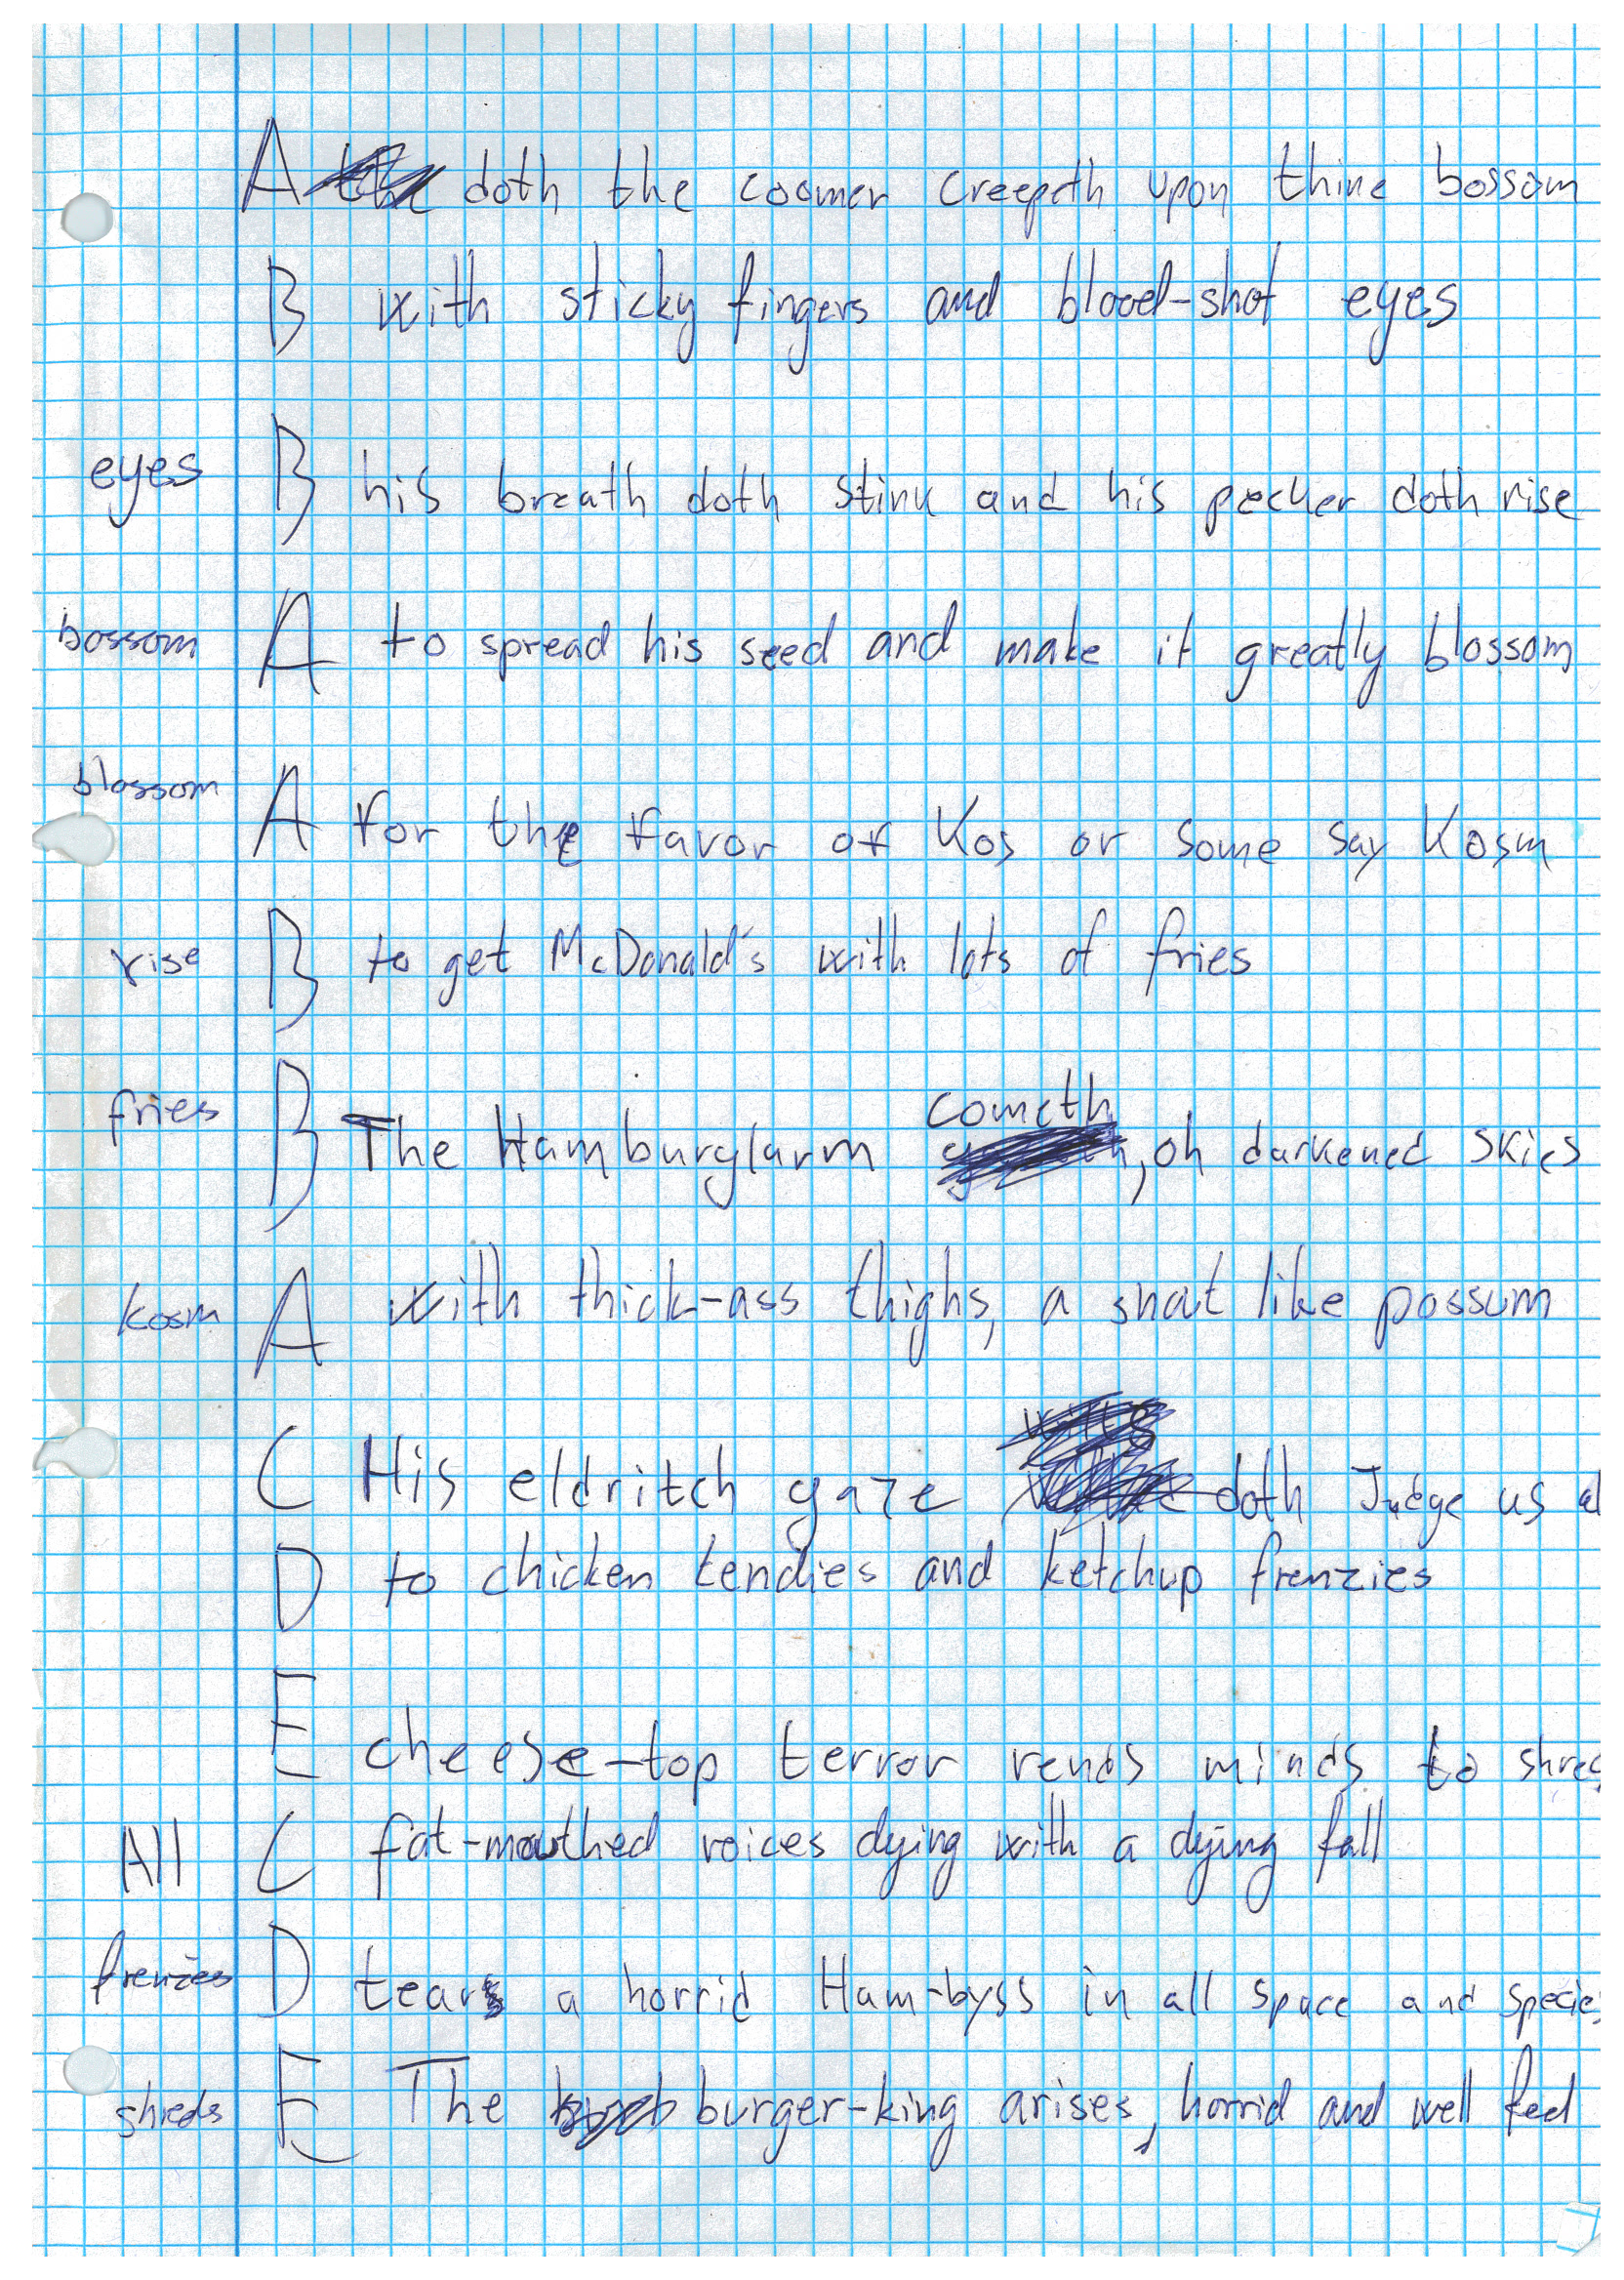 A doth the coomer creepeth upon thine bossom
B with sticky fingers and blood-shot eyes
eyes B his breath doth stink and his pecker doth rise
bossom A to spread his seed and make it greatly blossom
blossom A for the favor of Kos or some say Kosm
rise B to get McDonald's with lots of fries
cometh
fries B The Hamburglarm , oh darkened skies
kosm A with thick-ass thighs, a snat like possum
C His eldritch gaze doth Judge us al
D to chicken tendies and ketchup frenzies
E cheese-top terror rends minds to shred
All C fat-mouthed voices dying with a dying fall
frenzies D tears a horrid Ham-byss in all space and species
shreds E The burger-king arises, horrid and well feed